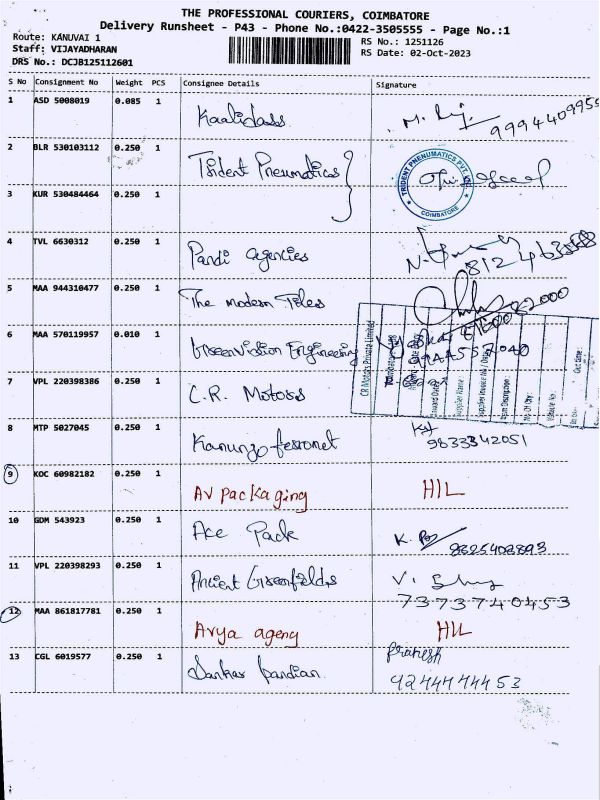 THE PROFESSIONAL COURIERS, COIMBATORE
Delivery Runsheet - P43 - Phone No.:0422-3505555 - Page No.:1
Route: KANUVAI 1
Staff: VIJAYADHARAN
DRS No.: DCJB125112601
RS No.: 1251126
RS Date: 02-Oct-2023
S No Consignment No Weight PCS Consignee Details Signature
1 ASD 5008019 0.085 1 Kaalidass
2 BLR 530103112 0.250 1 Trident Pneumatics
TRIDENT PNEUMATICS PVT. LTD.
COIMBATORE
3 KUR 530484464 0.250 1
4 TVL 6630312 0.250 1 Pandi agencies
5 MAA 944310477 0.250 1 The modern Tiles
6 MAA 570119957 0.010 1 Greenvision Engineering
CR Motors Private Limited
7 VPL 220398386 0.250 1 C.R. Motors
8 MTP 5027045 0.250 1 Kanungo ferronet
9833342051
9 KOC 60982182 0.250 1 AV packaging HIL
10 GDM 543923 0.250 1 Ace Pack
11 VPL 220398293 0.250 1 Ancient Greenfields
7373740453
12 MAA 861817781 0.250 1 Arya ageny HIL
13 CGL 6019577 0.250 1 Sankar pandian
9244444453